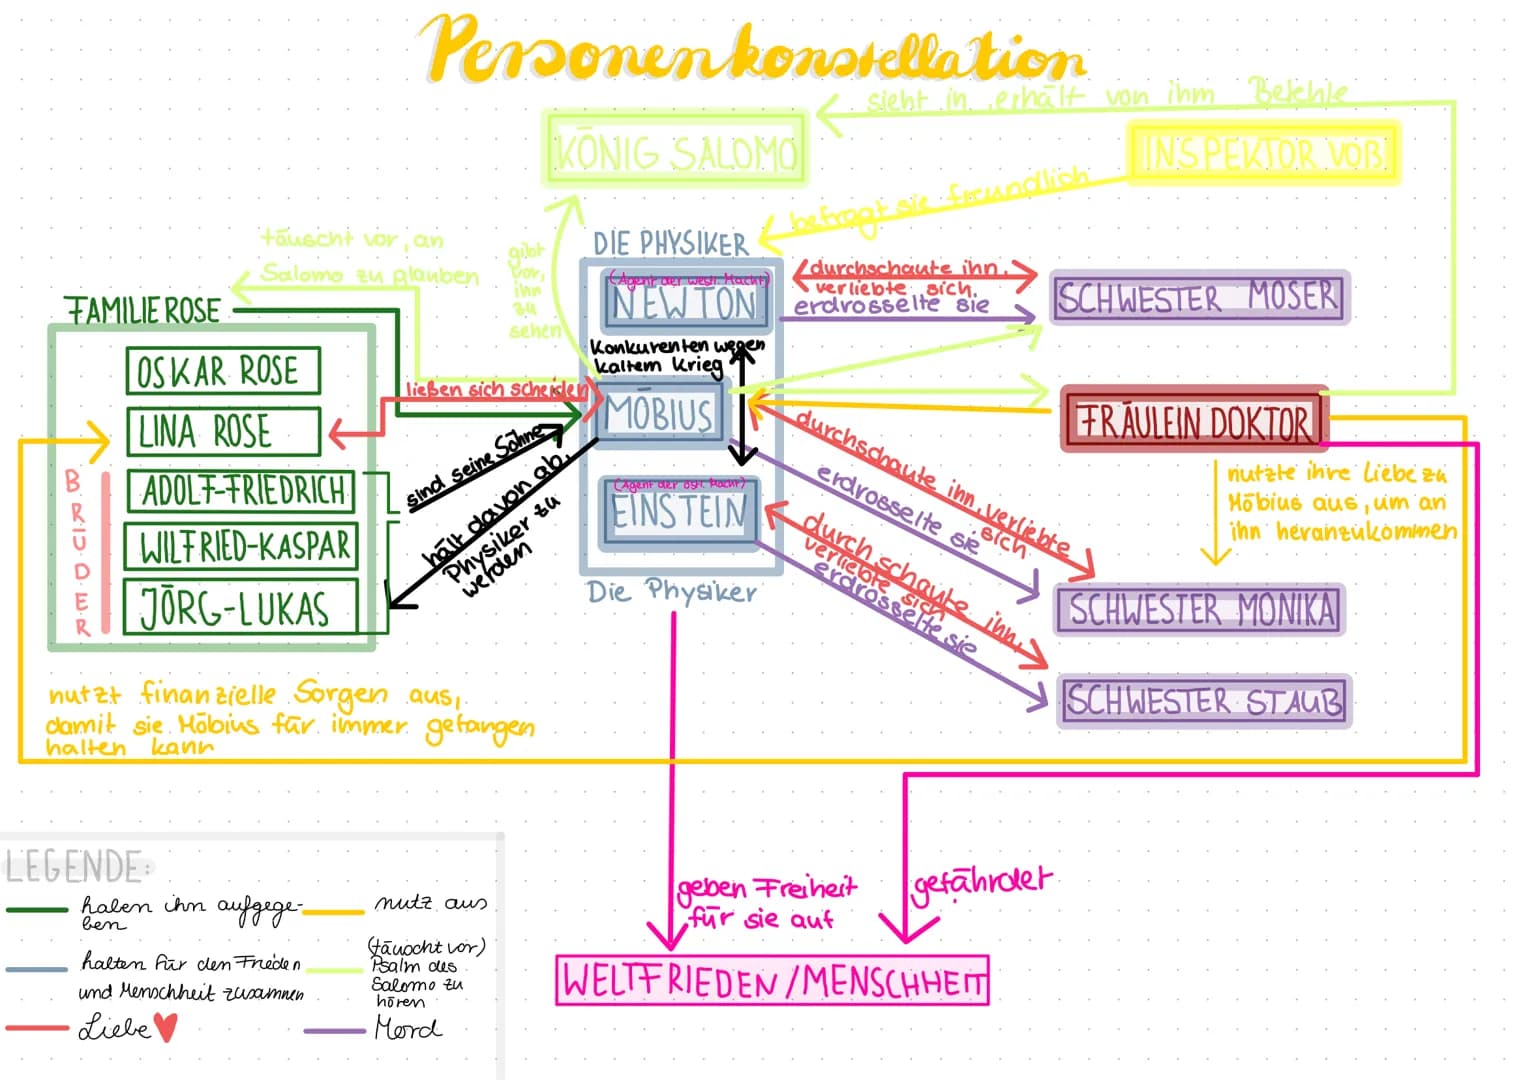 Personenkonstellation
sieht in, erhält von ihm Befehle
KÖNIG SALOMO
INSPEKTOR VOß
befragt sie freundlich
täuscht vor, an
Salomo zu glauben
gibt
vor,
ihn
zu
sehen
DIE PHYSIKER
FAMILIE ROSE
(Agent der westl. Macht)
NEWTON
durchschaute ihn,
verliebte sich
erdrosselte sie
SCHWESTER MOSER
Konkurenten wegen
kaltem Krieg
OSKAR ROSE
LINA ROSE
ADOLF-FRIEDRICH
WILFRIED-KASPAR
JÖRG-LUKAS
BRÜDER
ließen sich scheiden
MÖBIUS
sind seine Söhne
hält davon ab,
Physiker zu
werden
FRÄULEIN DOKTOR
durchschaute ihn, verliebte
sich
erdrosselte sie
nutzte ihre Liebe zu
Möbius aus, um an
ihn heranzukommen
(Agent der östl. Macht)
EINSTEIN
durchschaute ihn,
verliebte sich
erdrosselte sie
Die Physiker
SCHWESTER MONIKA
SCHWESTER STAUB
nutzt finanzielle Sorgen aus,
damit sie Möbius für immer gefangen
halten kann
LEGENDE:
haben ihn aufgege-
ben
nutz aus
halten für den Frieden
und Menschheit zusammen
(täuscht vor)
Psalm des
Salomo zu
hören
Liebe
Mord
geben Freiheit
für sie auf
gefährdet
WELTFRIEDEN/MENSCHHEIT